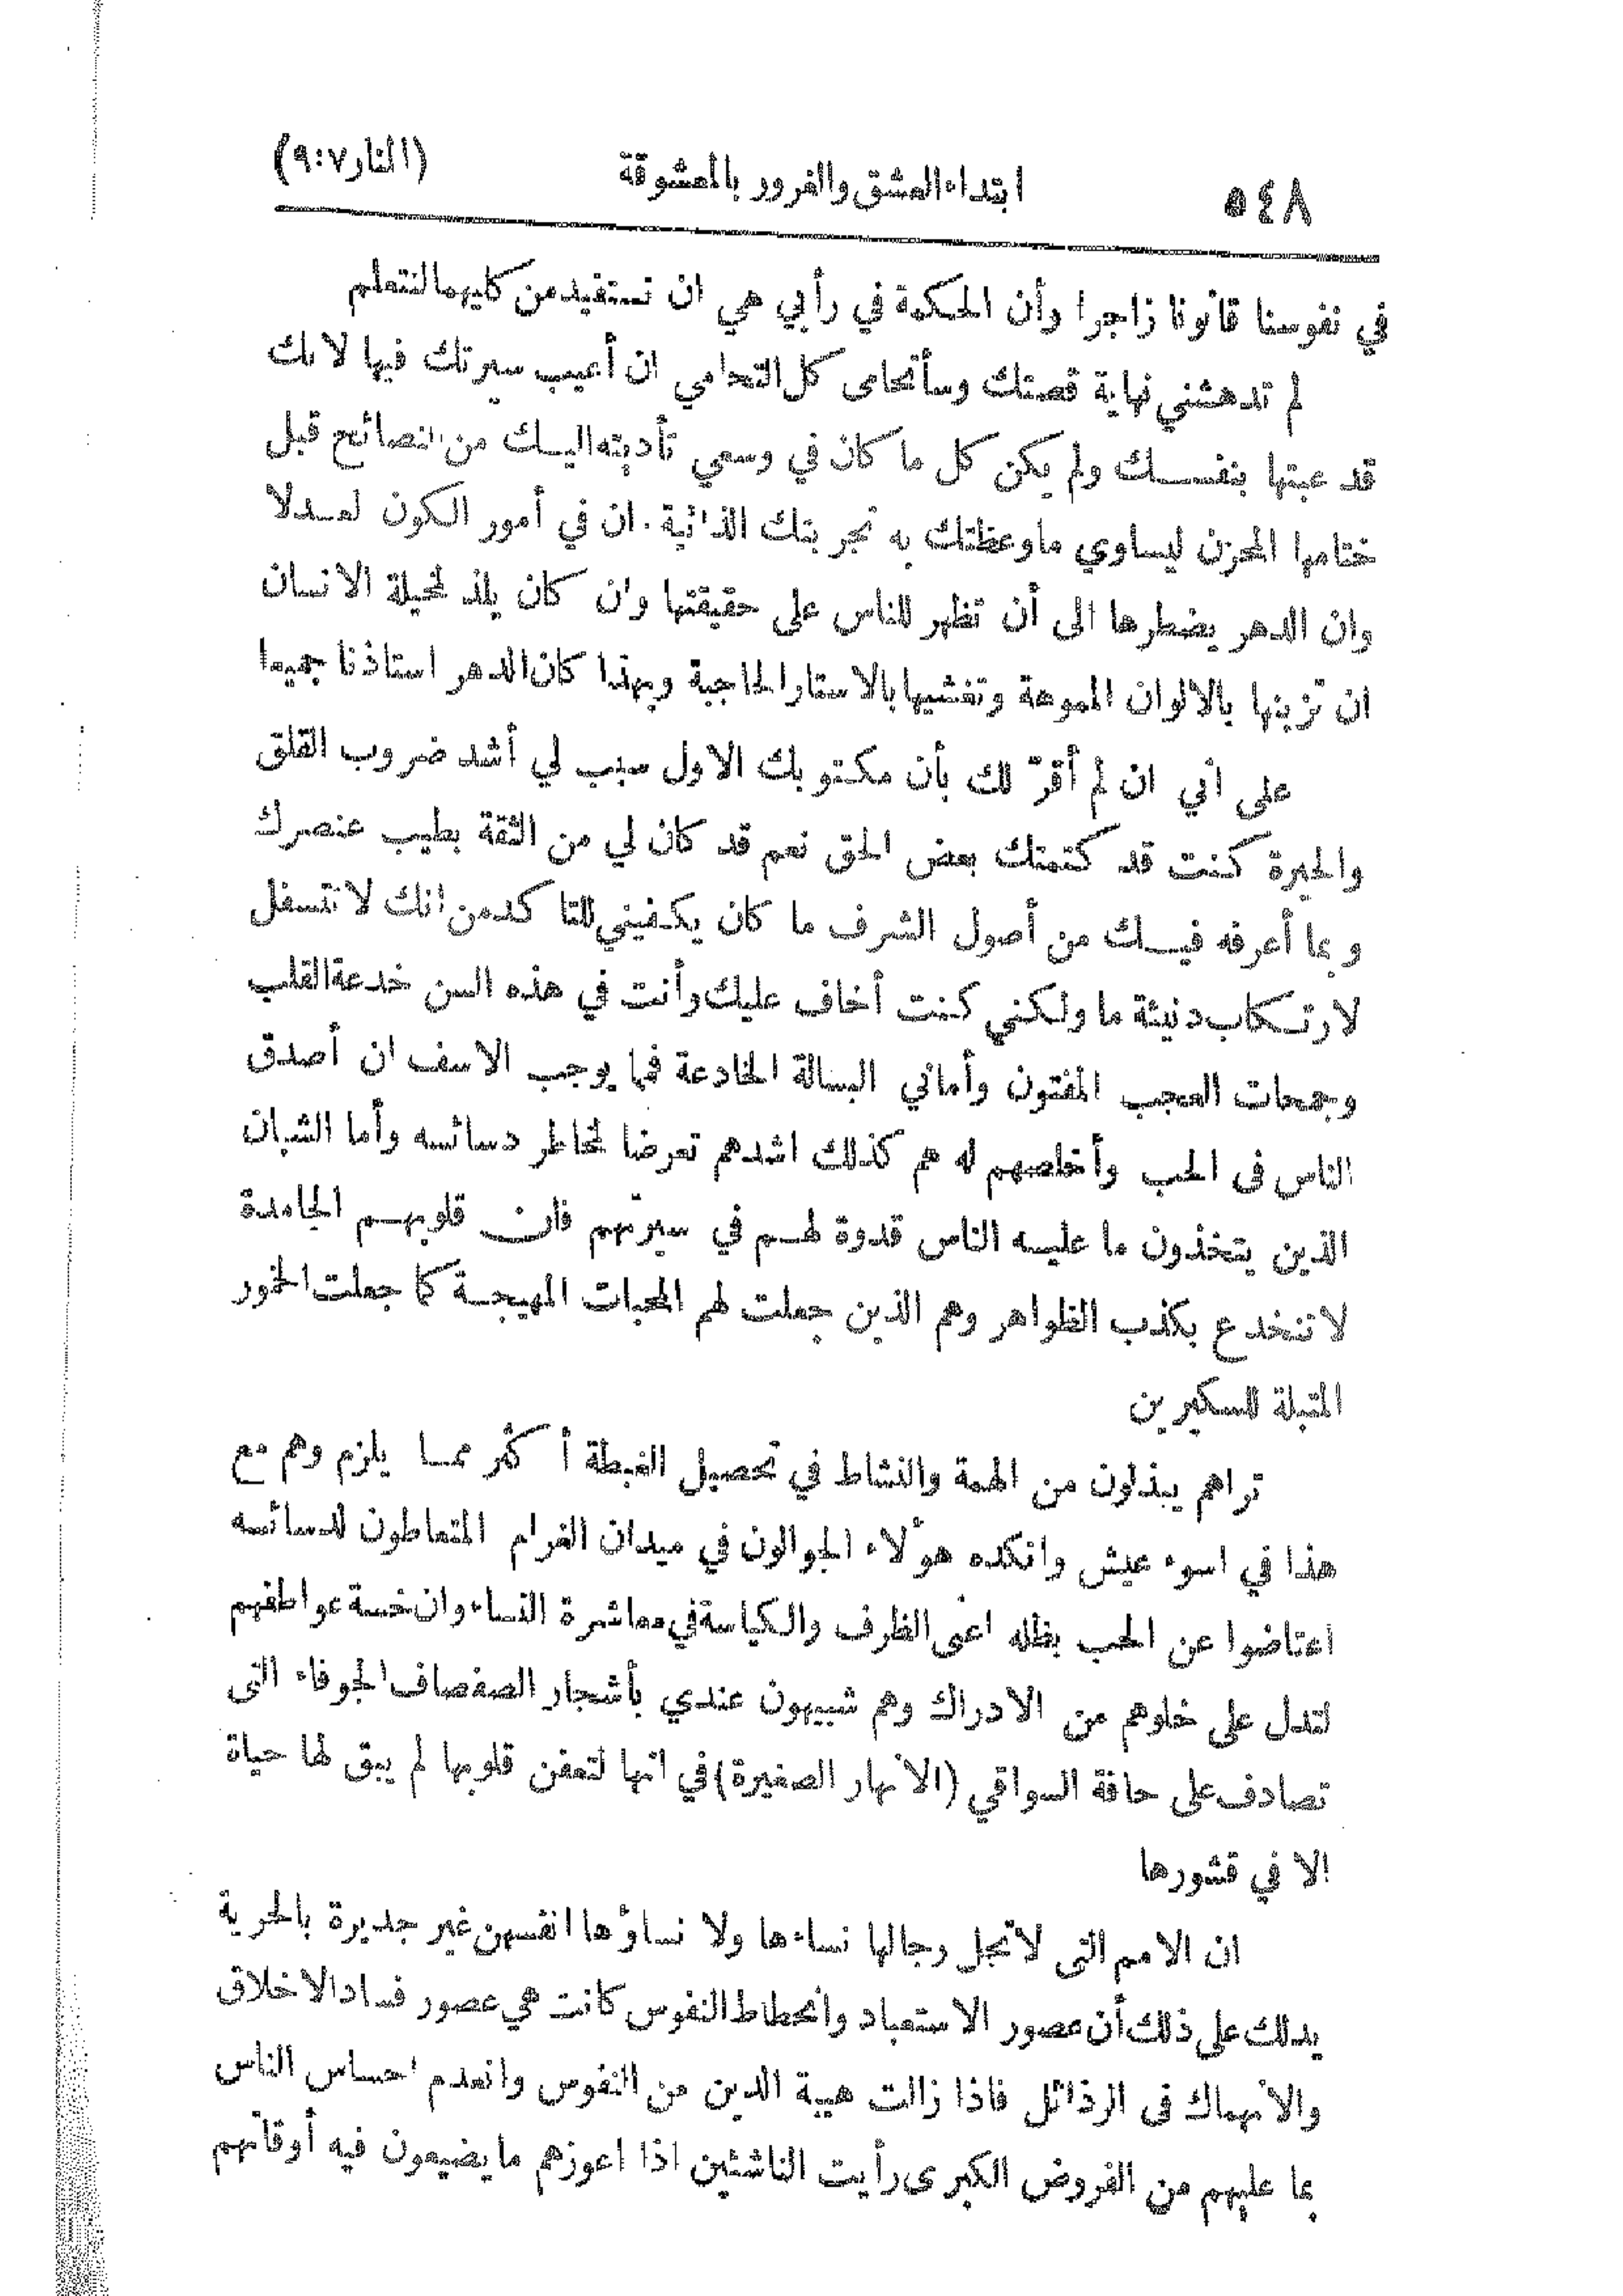 ٥٤٨ ابتداء العشق والغرور بالمعشوقة (المنار ٧:٩)
في نفوسنا قانونا زاجرا وأن الحكمة في رأيي هي ان نستفيد من كليهما لنتعلم
لم تدهشني نهاية قصتك وسأتحامى كل التحامي ان أعيب سيرتك فيها لانك
قد عبتها بنفسك ولم يكن كل ما كان في وسعي تأديته اليك من النصائح قبل
ختامها المحزن ليساوي ماوعظتك به تجربتك الذاتية . ان في أمور الكون لعدلا
وان الدهر يضطرها الى أن تظهر للناس على حقيقتها وان كان يلذ لمخيلة الانسان
ان تزينها بالالوان المموهة وتغشيها بالاستار الحاجبة وبهذا كان الدهر استاذنا جميعا
على اني ان لم أقرّ لك بأن مكتوبك الاول سبب لي أشد ضروب القلق
والحيرة كنت قد كتمتك بعض الحق نعم قد كان لي من الثقة بطيب عنصرك
وبما أعرفه فيك من أصول الشرف ما كان يكفيني للتأكد من انك لا تتسفل
لارتكاب دنيئة ما ولكني كنت أخاف عليك وأنت في هذه السن خدعة القلب
وجمحات العجب المفتون وأماني البسالة الخادعة فما يوجب الاسف ان أصدق
الناس في الحب وأخلصهم له هم كذلك اشدهم تعرضا لمخاطر دسائسه وأما الشبان
الذين يتخذون ما عليه الناس قدوة لهم في سيرتهم فان قلوبهم الجامدة
لا تنخدع بكذب الظواهر وهم الذين جعلت لهم المحبات المهيجة كما جعلت الخمور
المتبلة للسكيرين
تراهم يبذلون من الهمة والنشاط في تحصيل الغبطة أكثر مما يلزم وهم مع
هذا في اسوء عيش وانكده هؤلاء الجوالون في ميدان الغرام المتعاطون لدسائسه
اعتاضوا عن الحب بظله اعني الظرف والكياسة في معاشرة النساء وان خسة عواطفهم
لتدل على خلوهم من الادراك وهم شبيهون عندي بأشجار الصفصاف الجوفاء التى
تصادف على حافة السواقي (الانهار الصغيرة) في انها لتعفن قلوبها لم يبق لها حياة
الا في قشورها
ان الامم التى لا تجل رجالها نساءها ولا نساؤها انفسهن غير جديرة بالحرية
يدلك على ذلك أن عصور الاستعباد وانحطاط النفوس كانت هي عصور فساد الاخلاق
والانهماك فى الرذائل فاذا زالت هيبة الدين من النفوس وانعدم احساس الناس
بما عليهم من الفروض الكبرى رأيت الناشئين اذا اعوزهم ما يضيعون فيه أوقاتهم